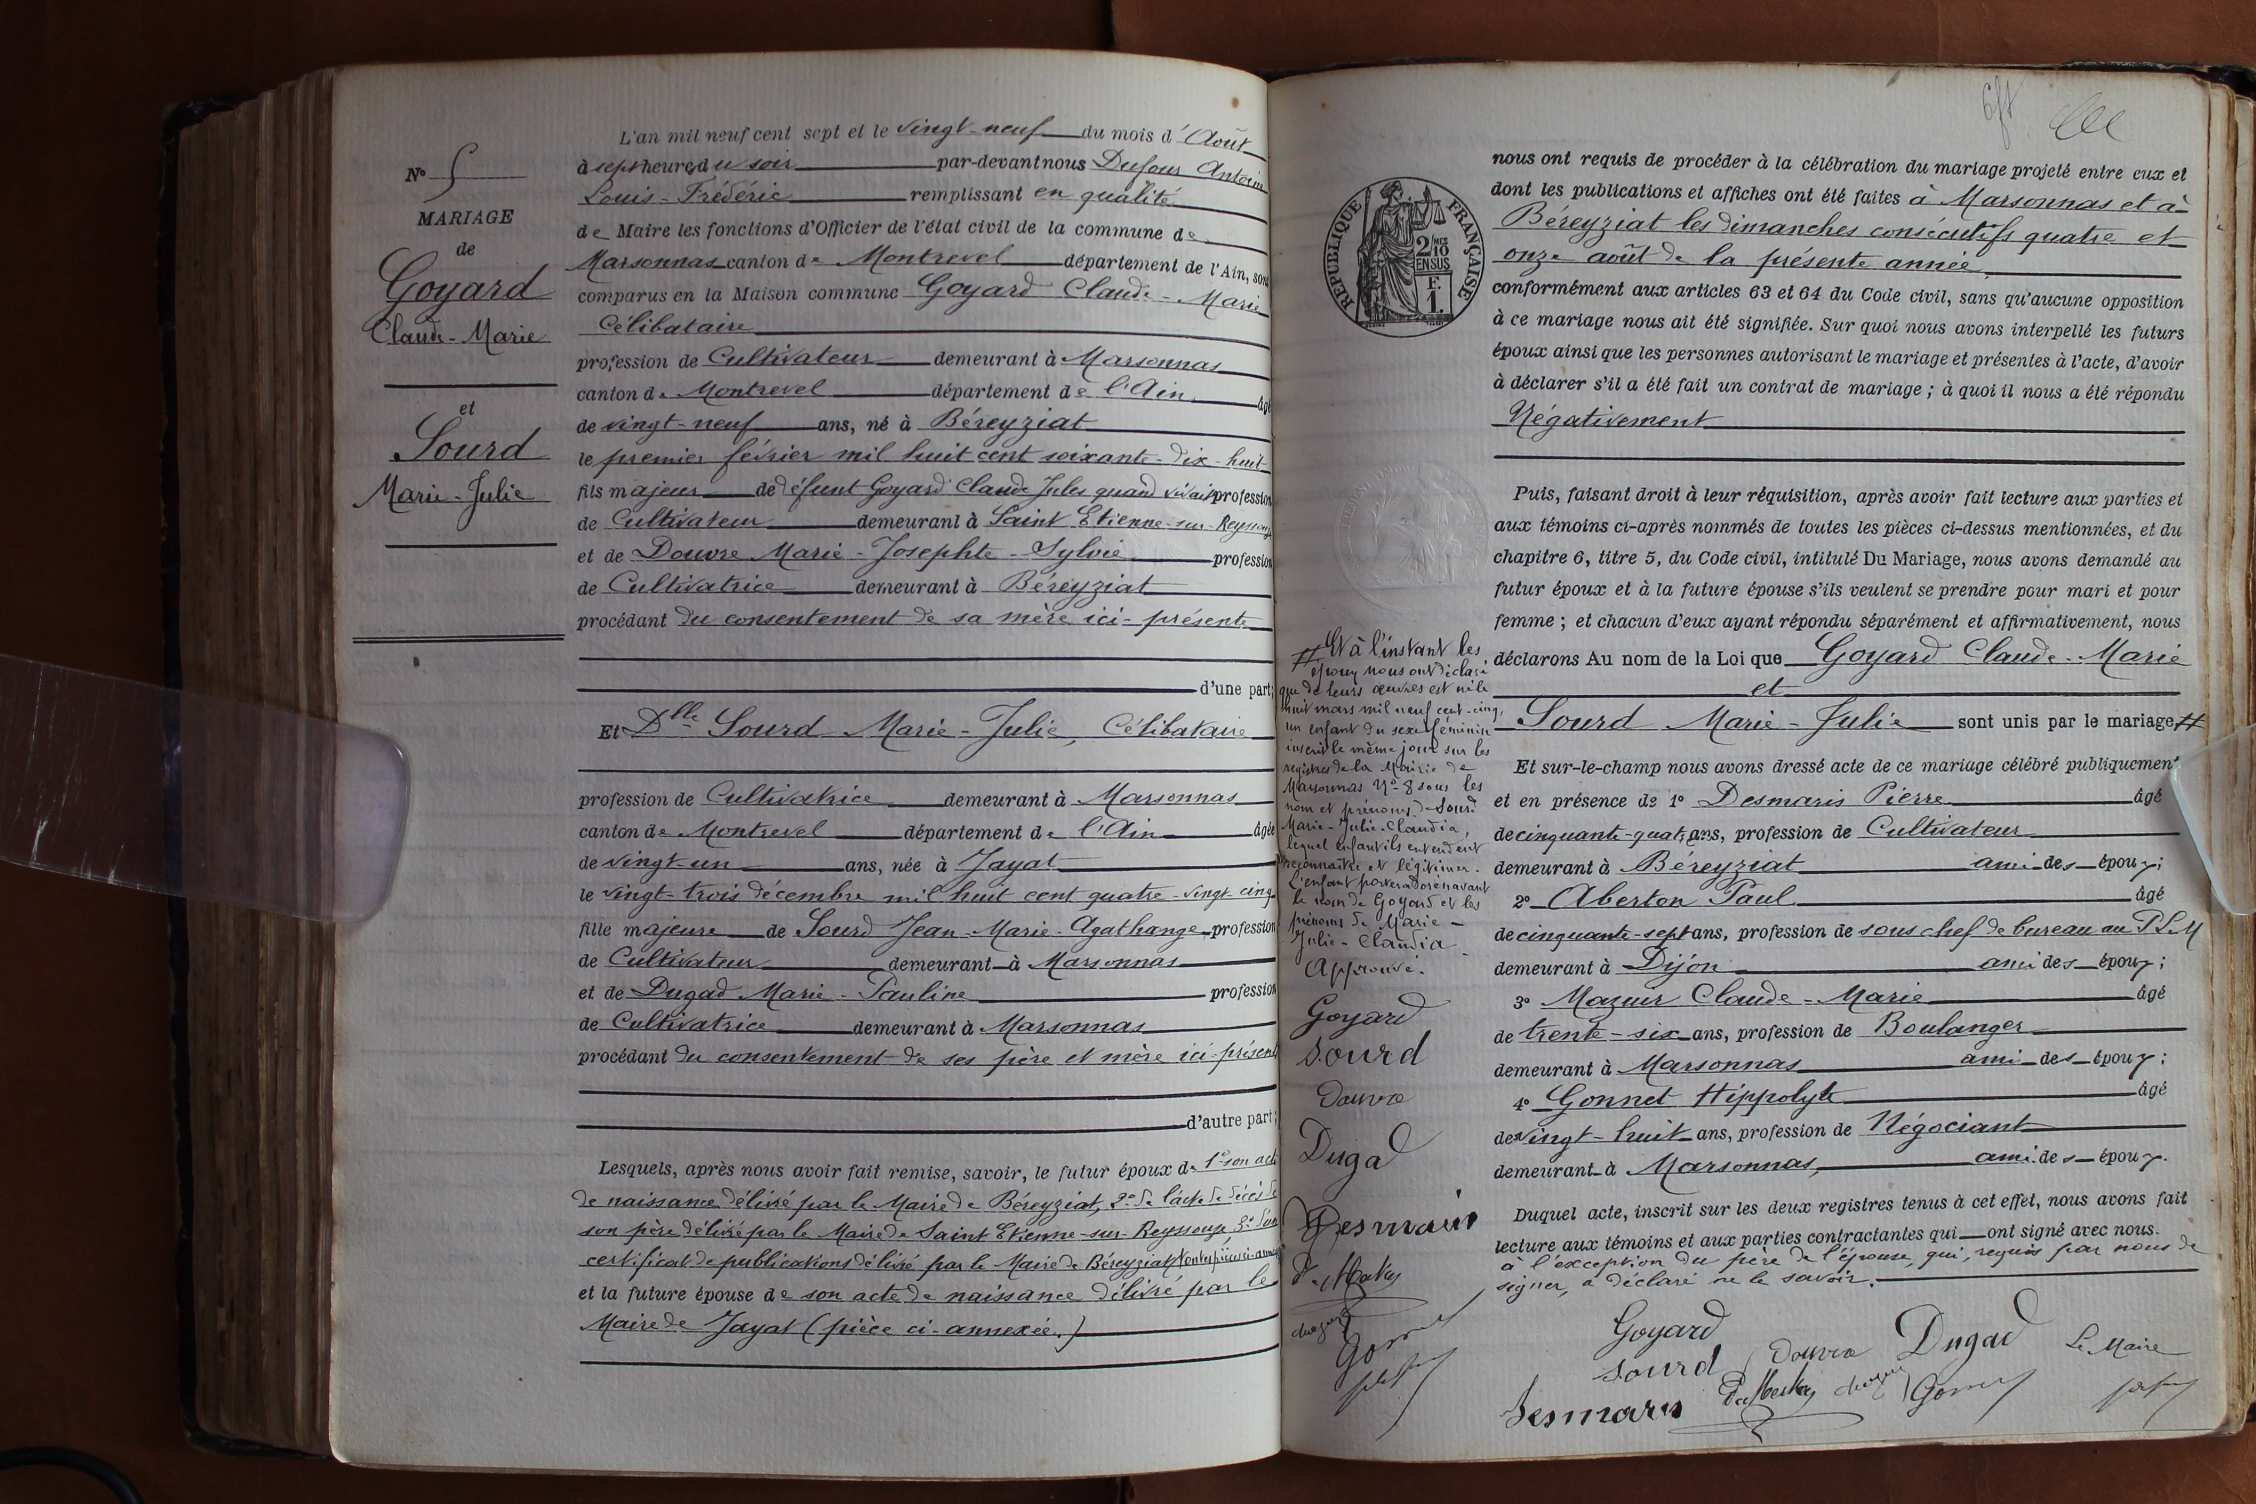 N° 5
MARIAGE
de
Goyard
Claude-Marie
et
Sourd
Marie-Julie
L'an mil neuf cent sept et le vingt-neuf du mois d'Août
à sept heures du soir par-devant nous Dufour Antoine
Louis-Frédéric remplissant en qualité
de Maire les fonctions d'Officier de l'état civil de la commune de
Marsonnas canton de Montrevel département de l'Ain, sont
comparus en la Maison commune Goyard Claude-Marie
Célibataire
profession de Cultivateur demeurant à Marsonnas
canton de Montrevel département de l'Ain âgé
de vingt-neuf ans, né à Béreyziat
le premier février mil huit cent soixante-dix-huit
fils majeur de défunt Goyard Claude Jules quand vivait profession
de Cultivateur demeurant à Saint Etienne-sur-Reyssouze
et de Douvre Marie-Josephte-Sylvie profession
de Cultivatrice demeurant à Béreyziat
procédant du consentement de sa mère ici-présente
d'une part;
Et Dlle Sourd Marie-Julie, Célibataire
profession de Cultivatrice demeurant à Marsonnas
canton de Montrevel département de l'Ain âgée
de vingt-un ans, née à Jayat
le vingt-trois décembre mil huit cent quatre-vingt-cinq
fille majeure de Sourd Jean-Marie-Agathange profession
de Cultivateur demeurant à Marsonnas
et de Dugad Marie-Pauline profession
de Cultivatrice demeurant à Marsonnas
procédant du consentement de ses père et mère ici-présents
d'autre part;
Lesquels, après nous avoir fait remise, savoir, le futur époux de 1° son acte
de naissance délivré par le Maire de Béreyziat, 2° de l'acte de décès de
son père délivré par le Maire de Saint Etienne-sur-Reyssouze, 3° d'un
certificat de publications délivré par le Maire de Béreyziat
et la future épouse de son acte de naissance délivré par le
Maire de Jayat (pièce ci-annexée.)
REPUBLIQUE FRANÇAISE
2/10mes
EN SUS
1F.
nous ont requis de procéder à la célébration du mariage projeté entre eux et
dont les publications et affiches ont été faites à Marsonnas et à
Béreyziat les dimanches consécutifs quatre et
onze août de la présente année
conformément aux articles 63 et 64 du Code civil, sans qu'aucune opposition
à ce mariage nous ait été signifiée. Sur quoi nous avons interpellé les futurs
époux ainsi que les personnes autorisant le mariage et présentes à l'acte, d'avoir
à déclarer s'il a été fait un contrat de mariage ; à quoi il nous a été répondu
Négativement
Puis, faisant droit à leur réquisition, après avoir fait lecture aux parties et
aux témoins ci-après nommés de toutes les pièces ci-dessus mentionnées, et du
chapitre 6, titre 5, du Code civil, intitulé Du Mariage, nous avons demandé au
futur époux et à la future épouse s'ils veulent se prendre pour mari et pour
femme ; et chacun d'eux ayant répondu séparément et affirmativement, nous
déclarons Au nom de la Loi que Goyard Claude-Marie
et
Sourd Marie-Julie sont unis par le mariage #
Et sur-le-champ nous avons dressé acte de ce mariage célébré publiquement
et en présence de 1° Desmaris Pierre âgé
de cinquante-quatre ans, profession de Cultivateur
demeurant à Béreyziat ami des époux;
2° Aberton Paul âgé
de cinquante-sept ans, profession de sous chef de bureau au PLM
demeurant à Dijon ami des époux;
3° Mazuir Claude-Marie âgé
de trente-six ans, profession de Boulanger
demeurant à Marsonnas ami des époux;
4° Gonnet Hippolyte âgé
de vingt-huit ans, profession de Négociant
demeurant à Marsonnas, ami des époux.
Duquel acte, inscrit sur les deux registres tenus à cet effet, nous avons fait
lecture aux témoins et aux parties contractantes qui ont signé avec nous.
à l'exception du père de l'épouse, qui, requis par nous de
signer, a déclaré ne le savoir.
Goyard
Sourd Douvre Dugad Le Maire
Desmaris
# Et à l'instant les
époux nous ont déclaré
que de leurs œuvres est né le
huit mars mil neuf cent-cinq,
un enfant du sexe féminin
inscrit le même jour sur les
registres de la Mairie de
Marsonnas N° 8 sous les
nom et prénoms de Sourd
Marie-Julie-Claudia,
lequel enfant ils entendent
reconnaître et légitimer.
L'enfant portera dorénavant
le nom de Goyard et les
prénoms de Marie-
Julie-Claudia
Approuvé.
Goyard
Sourd
Douvre
Dugad
Desmaris